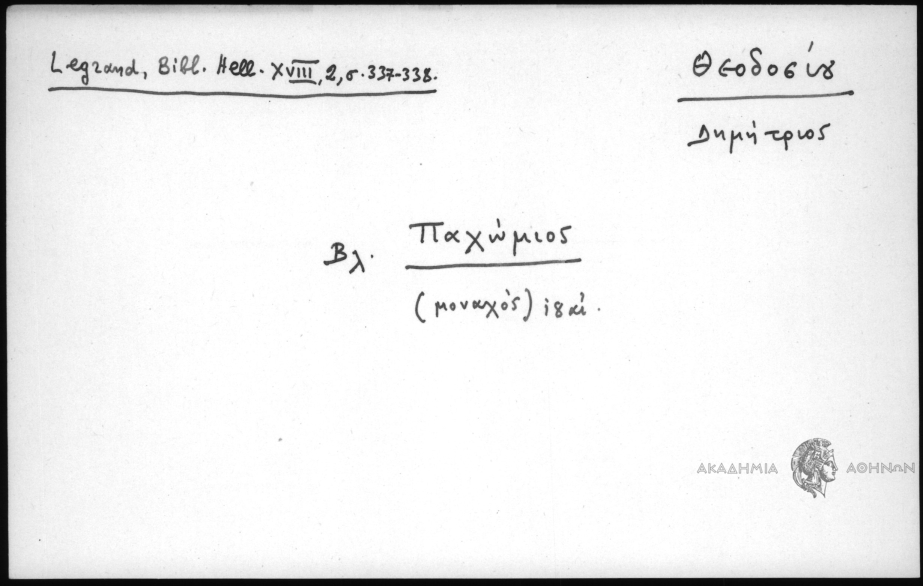 Legrand, Bibl. Hell. XVIII, 2, σ. 337-338.
Θεοδοσίȣ
Δημήτριος
Βλ. Παχώμιος
(μοναχός) ι8 αἰ.
ΑΚΑΔΗΜΙΑ ΑΘΗΝΩΝ